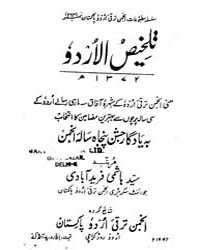 سلسلۂ مطبوعات انجمن ترقی اردو پاکستان
تلخیص الاردو
۱۳۷۲ھ
یعنی انجمن ترقی اردو کے شہرۂ آفاق سہ ماہی رسالے اردو کے
سی سالہ پرچوں سے بہترین مضامین کا انتخاب
بہ یادگار جشن پنجاہ سالۂ انجمن
DELHI
مرتبہ
سید ہاشمی فریدآبادی
جوائنٹ سکریٹری انجمن ترقی اردو پاکستان
شائع کردہ
انجمن ترقی اردو پاکستان
اردو روڈ کراچی